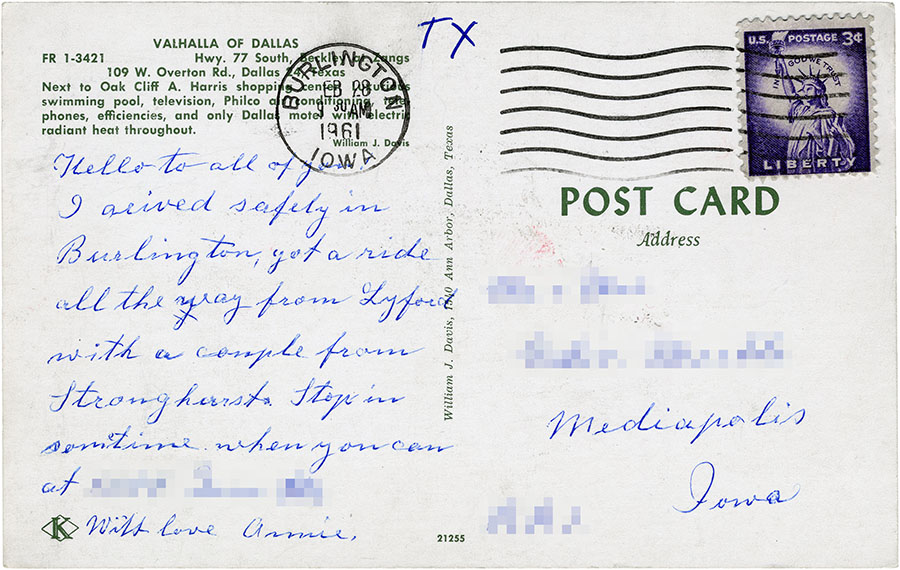 TX
VALHALLA OF DALLAS
FR 1-3421 Hwy. 77 South, Beckley at Zangs
109 W. Overton Rd., Dallas Texas
Next to Oak Cliff A. Harris shopping center.
swimming pool, television, Philco air conditioning,
phones, efficiencies, and only Dallas motel with electric
radiant heat throughout.
William J. Davis
BURLINGTON
FEB 28
30 AM
1961
IOWA
U.S. POSTAGE 3¢
IN GOD WE TRUST
LIBERTY
Hello to all of you,
I arived safely in
Burlington, got a ride
all the way from Lyford
with a couple from
Stronghurst. Stop in
somtime when you can
at
With love Annie.
K
William J. Davis, 1540 Ann Arbor, Dallas, Texas
21255
POST CARD
Address
Mediapolis
Iowa